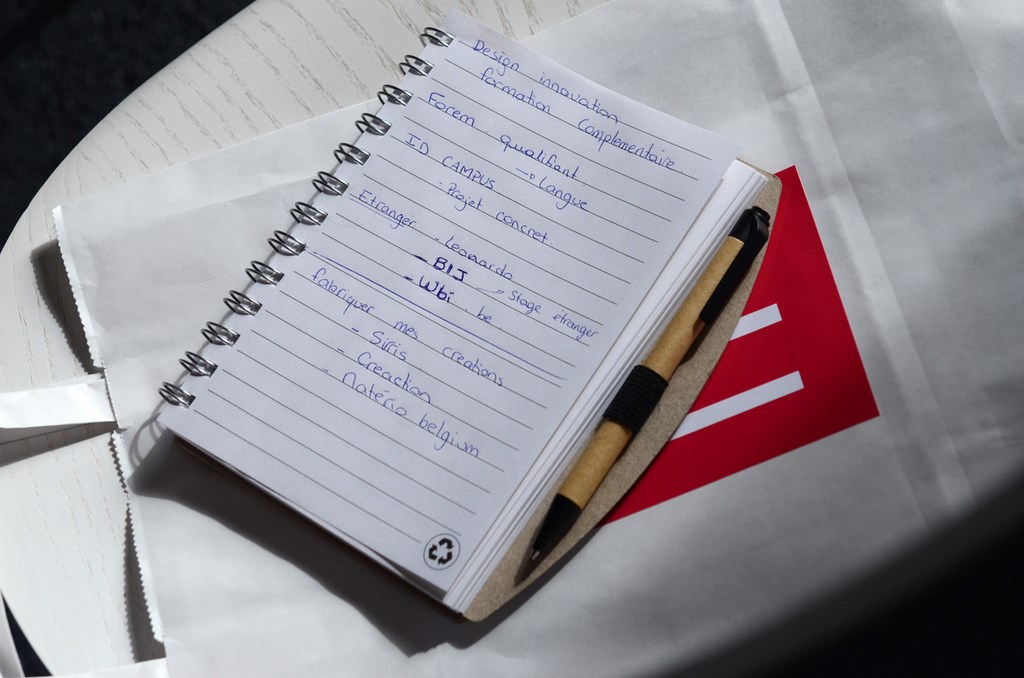 Design innovation
formation complementaire
Forem qualifiant
→ langue
ID CAMPUS
- Projet concret
Etranger - Leonardo
- BIJ → stage étranger
- Wbi . be
fabriquer mes creations
- Sirris
- Creaction
- Matério belgium